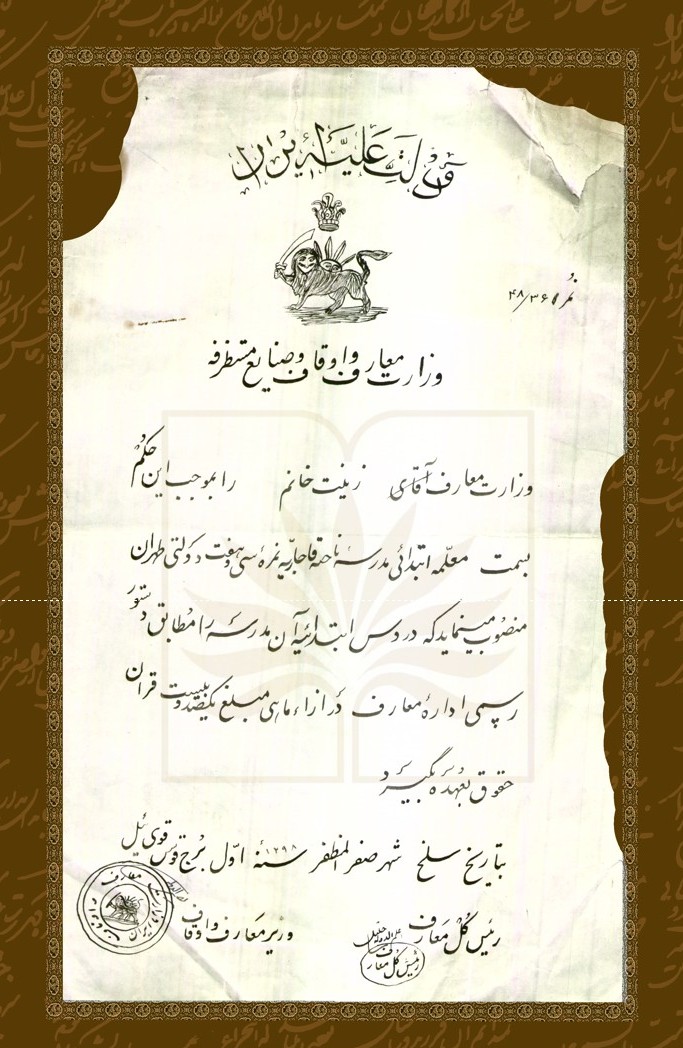 دولت علیّه ایران
نمره ۴۸/۳۶۱
وزارت معارف و اوقاف و صنایع مستظرفه
وزارت معارف آقای زینت خانم را بموجب این حکم
بسمت معلّمه ابتدائی مدرسه ناحقه قاجاریه نمرهٔ سی و هفت دولتی طهران
منصوب مینماید که دروس ابتدائیه آن مدرسه را مطابق دستور
رسمی ادارهٔ معارف در ازاء ماهی مبلغ یکصد و بیست قران
حقوق بعهده بگیرد
بتاریخ سلخ شهر صفر المظفر سنه ۱۲۹۸ اوّل برج قوس قوی ئیل
رئیس کل معارف
وزیر معارف و اوقاف
رئیس کل معارف